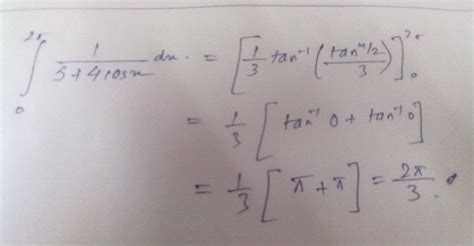 ∫₀^{2π} 1/(5+4cosx) dx. = [1/3 tan⁻¹ (tan x/2 / 3)]₀^{2π}
= 1/3 [tan⁻¹ 0 + tan⁻¹ 0]
= 1/3 [π + π] = 2π/3.